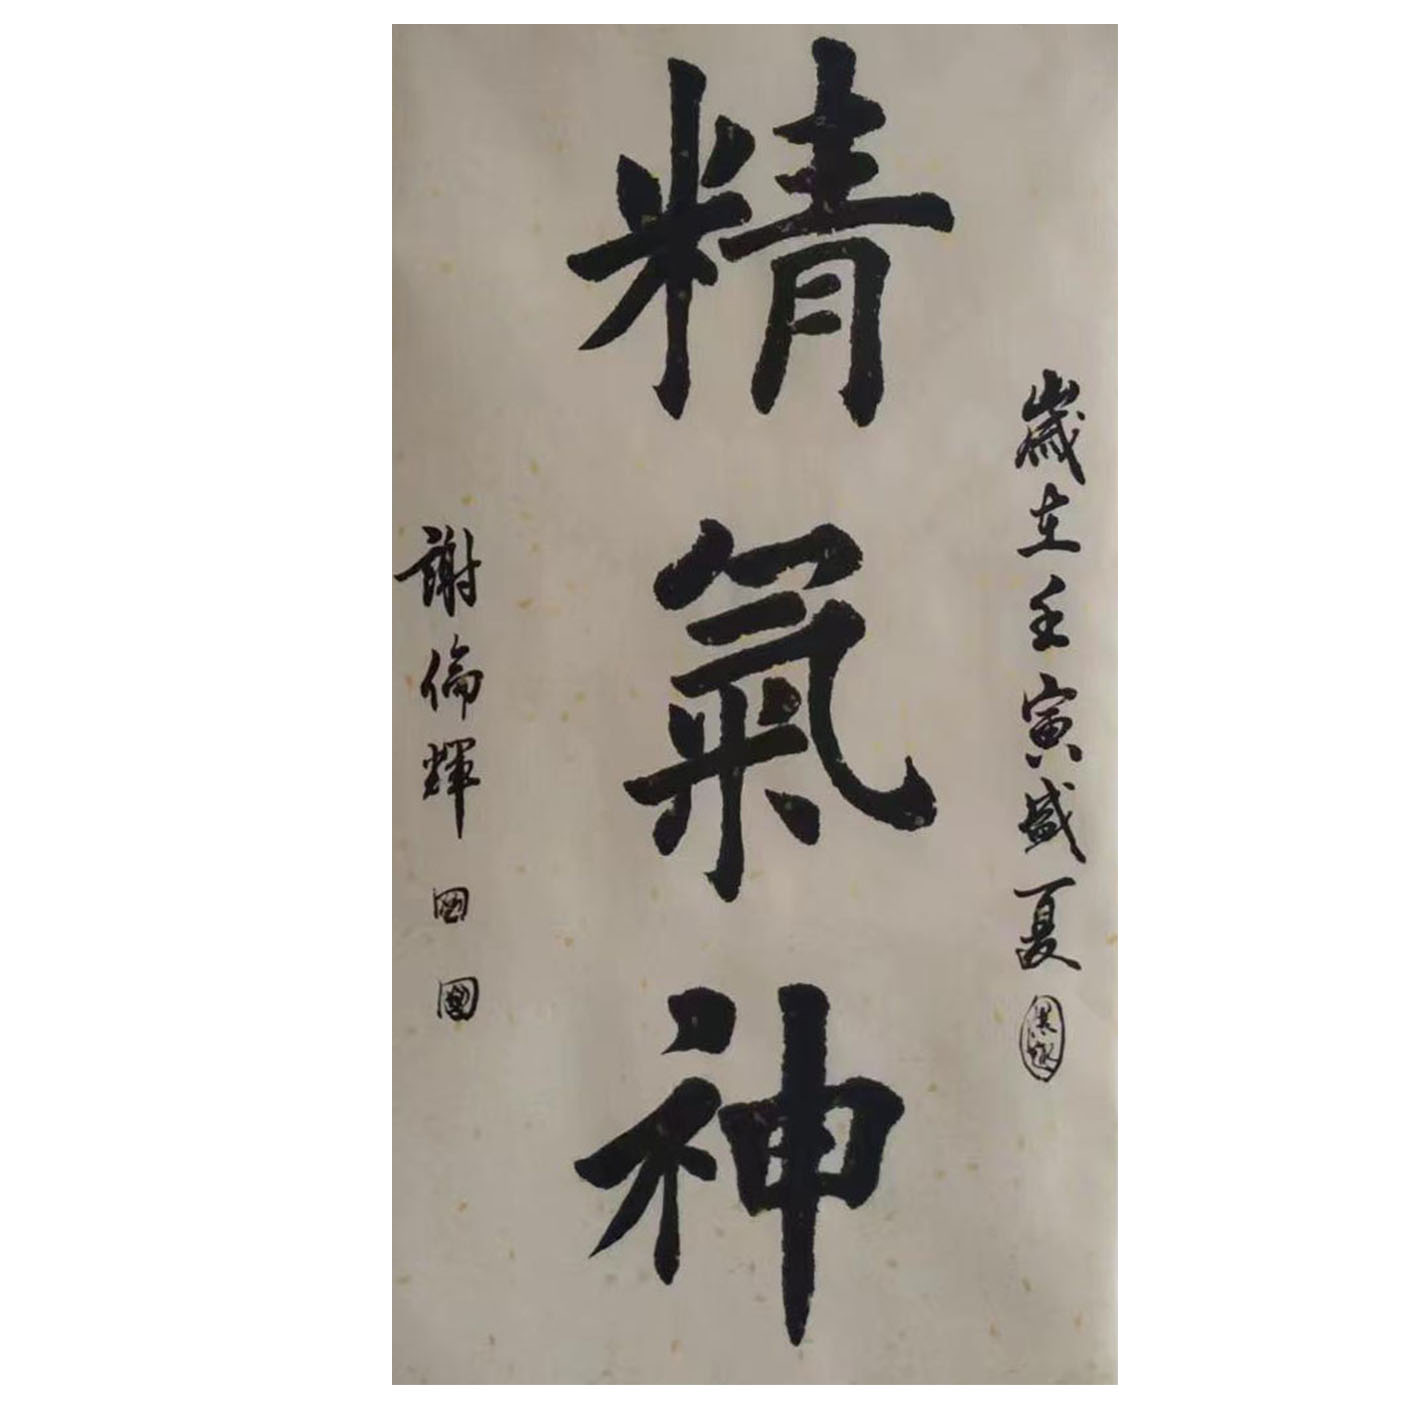 歲在壬寅盛夏
精氣神
謝倫輝